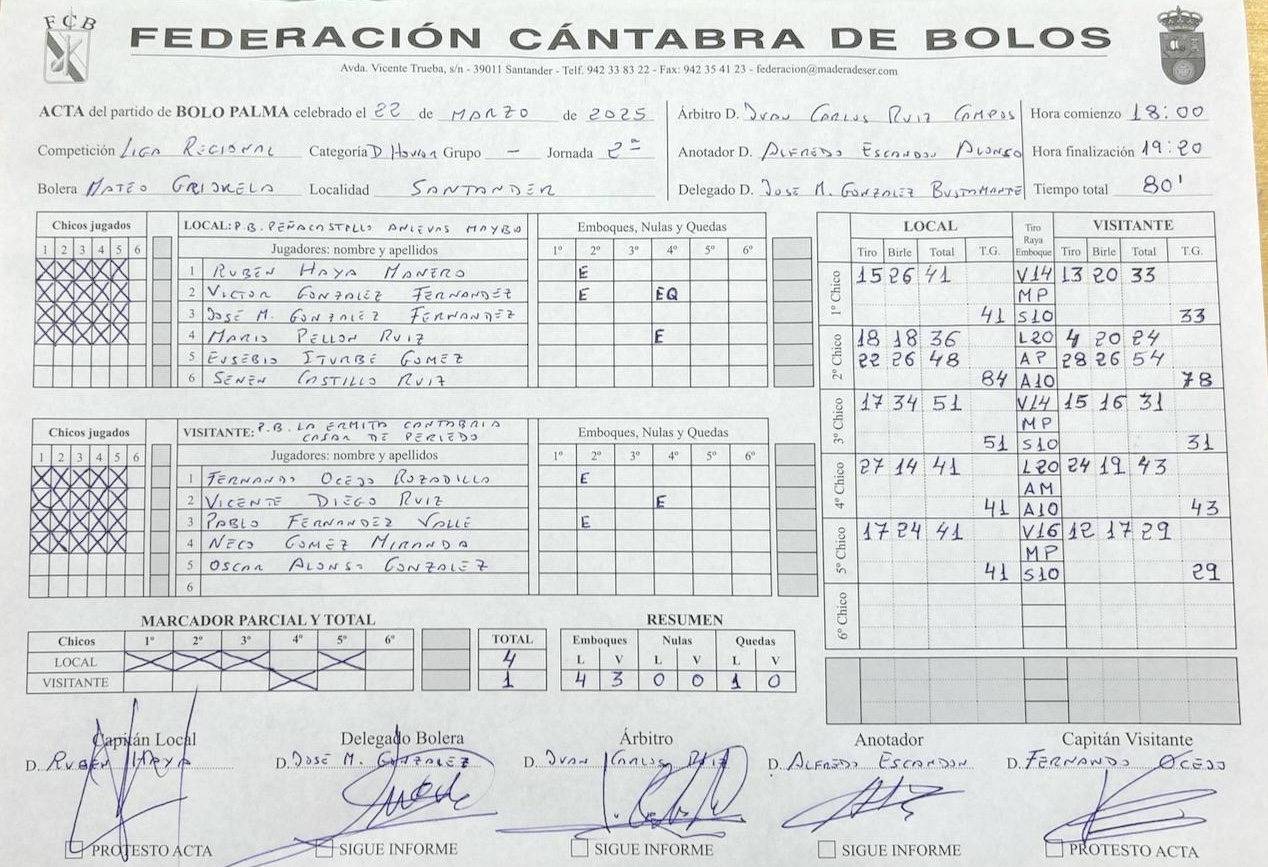 FCB
FEDERACIÓN CÁNTABRA DE BOLOS
Avda. Vicente Trueba, s/n - 39011 Santander - Telf. 942 33 83 22 - Fax: 942 35 41 23 - federacion@maderadeser.com
ACTA del partido de BOLO PALMA celebrado el 22 de MARZO de 2025 Árbitro D. JUAN CARLOS RUIZ CAMPOS Hora comienzo 18:00
Competición LIGA REGIONAL Categoría D. HONOR Grupo - Jornada 2ª Anotador D. ALFREDO ESCANDON ALONSO Hora finalización 19:20
Bolera MATEO GRIJUELA Localidad SANTANDER Delegado D. JOSE M. GONZALEZ BUSTAMANTE Tiempo total 80'
Chicos jugados LOCAL: P.B. PEÑACASTILLO ANIEVAS MAYBA Emboques, Nulas y Quedas
1 2 3 4 5 6 Jugadores: nombre y apellidos 1º 2º 3º 4º 5º 6º
1 RUBEN HAYA MANERO E
2 VICTOR GONZALEZ FERNANDEZ E EQ
3 JOSÉ M. GONZALEZ FERNANDEZ
4 MARIO PELLON RUIZ E
5 EUSEBIO ITURBE GOMEZ
6 SENEN CASTILLO RUIZ
Chicos jugados VISITANTE: P.B. LA ERMITA CANTABRIA CASAR DE PERIEDO Emboques, Nulas y Quedas
1 2 3 4 5 6 Jugadores: nombre y apellidos 1º 2º 3º 4º 5º 6º
1 FERNANDO OCEJO ROZADILLA E
2 VICENTE DIEGO RUIZ E
3 PABLO FERNANDEZ VALLE E
4 NECO GOMEZ MIRANDA
5 OSCAR ALONSO GONZALEZ
6
LOCAL Tiro Raya Emboque VISITANTE
Tiro Birle Total T.G. Tiro Birle Total T.G.
1º Chico 15 26 41 V14 13 20 33
MP
41 S10 33
2º Chico 18 18 36 L20 4 20 24
22 26 48 AP 28 26 54
84 A10 78
3º Chico 17 34 51 V14 15 16 31
MP
51 S10 31
4º Chico 27 14 41 L20 24 19 43
AM
41 A10 43
5º Chico 17 24 41 V16 12 17 29
MP
41 S10 29
6º Chico
MARCADOR PARCIAL Y TOTAL RESUMEN
Chicos 1º 2º 3º 4º 5º 6º TOTAL Emboques Nulas Quedas
LOCAL 4 L V L V L V
VISITANTE 1 4 3 0 0 1 0
Capitán Local Delegado Bolera Árbitro Anotador Capitán Visitante
D. RUBEN HAYA D. JOSÉ M. GONZALEZ D. JUAN CARLOS RUIZ D. ALFREDO ESCANDON D. FERNANDO OCEJO
PROTESTO ACTA SIGUE INFORME SIGUE INFORME SIGUE INFORME PROTESTO ACTA